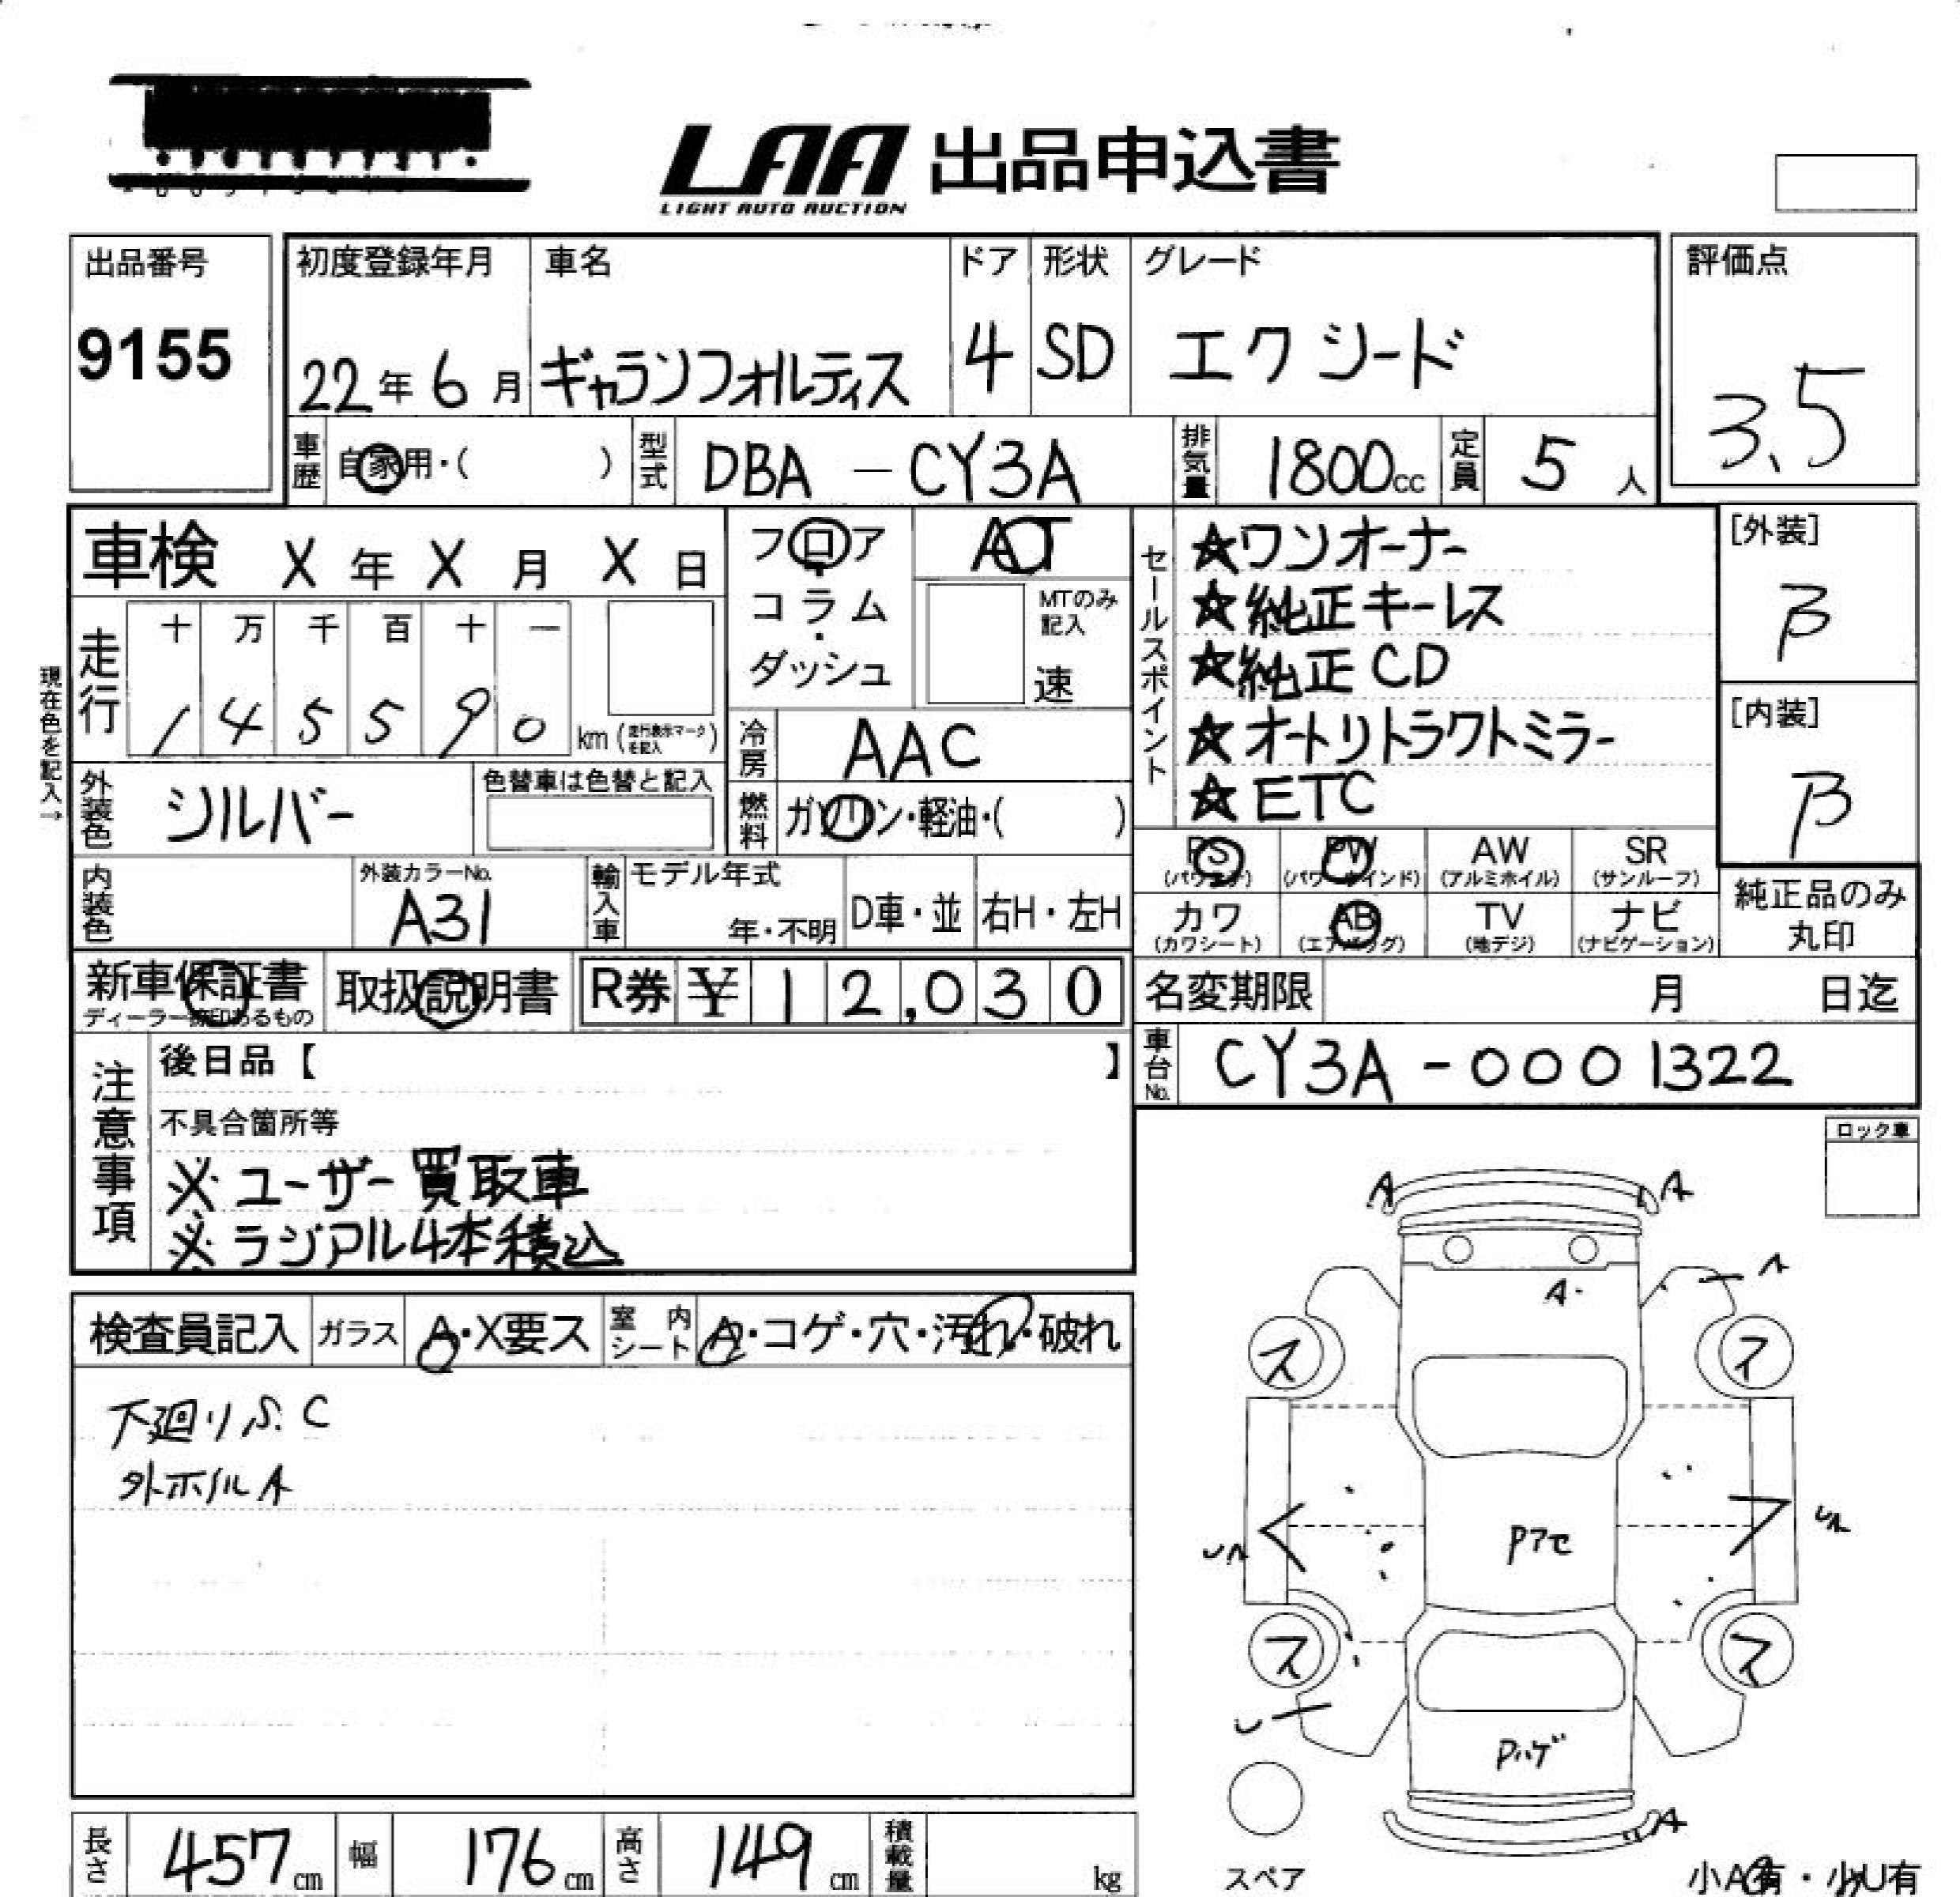 LAA 出品申込書
LIGHT AUTO AUCTION
出品番号
9155
初度登録年月
22年6月
車名
ギャランフォルティス
ドア
4
形状
SD
グレード
エクシード
評価点
3.5
車歴 自家用・( )
型式 DBA - CY3A
排気量 1800cc
定員 5人
車検 X年X月X日
フロア・コラム・ダッシュ
AT
MTのみ記入
速
走行
十 万 千 百 十 一
1 4 5 5 9 0 km(走行表示マークを記入)
現在色を記入→
外装色 シルバー
色替車は色替と記入
冷房 AAC
燃料 ガソリン・軽油・( )
セールスポイント
☆ワンオーナー
☆純正キーレス
☆純正CD
☆オートリトラクトミラー
☆ETC
[外装]
β
[内装]
β
PS (パワステ)
PW (パワーウインド)
AW (アルミホイル)
SR (サンルーフ)
カワ (カワシート)
AB (エアバッグ)
TV (地デジ)
ナビ (ナビゲーション)
純正品のみ丸印
内装色
外装カラーNo.
A31
輸入車
モデル年式
年・不明
D車・並
右H・左H
新車保証書
ディーラー捺印あるもの
取扱説明書
R券 ¥12,030
名変期限 月 日迄
車台No. CY3A-0001322
注意事項
後日品【 】
不具合箇所等
※ユーザー買取車
※ラジアル4本積込
ロック車
検査員記入
ガラス A・X要ス
室内シート A・コゲ・穴・汚れ・破れ
下廻りS.C
外ホイルA
A A
A
A
ス ス
Pアセ
ス ス
Pハゲ
A
スペア
小A有・小U有
長さ 457cm
幅 176cm
高さ 149cm
積載量 kg